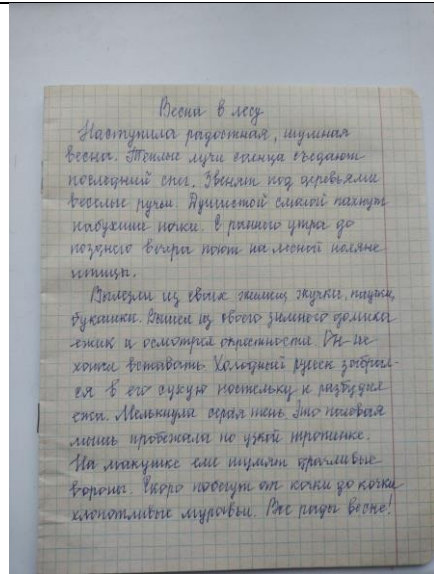 Весна в лесу
Наступила радостная, шумная
весна. Теплые лучи солнца съедают
последний снег. Звенят под деревьями
веселые ручьи. Душистой смолой пахнут
набухшие почки. С раннего утра до
позднего вечера поют на лесной поляне
птицы.
Вылезли из своих жилищ жучки, паучки,
букашки. Вышел из своего зимнего домика
ежик и осмотрел окрестности. Он не
хотел вставать. Холодный ручеек забрал-
ся в его сухую постельку и разбудил
ежа. Мелькнула серая тень. Это полевая
мышь пробежала по узкой тропинке.
На макушке ели шумят крикливые
вороны. Скоро побегут от кочки до кочки
хлопотливые муравьи. Все рады весне!